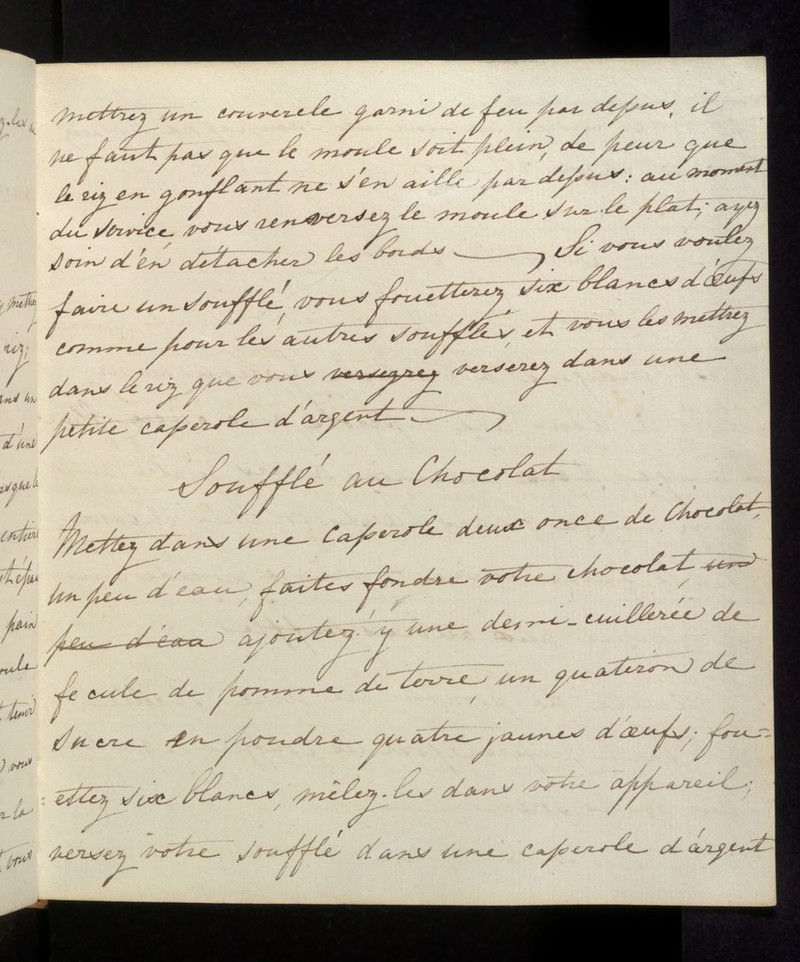 mettrez un couvercle garni de feu par dessus, il
ne faut pas que le moule soit plein, de peur que
le riz en gonflant ne s'en aille par dessus : au moment
du service vous renversez le moule sur le plat; ayez
soin d'en détacher les bords — Si vous voulez
faire un soufflé, vous fouetterez six blancs d'œufs
comme pour les autres soufflés, et vous les mettrez
dans le riz que vous versezrez verserez dans une
petite casserole d'argent —
Soufflé au Chocolat
Mettez dans une Casserole deux once de Chocolat,
un peu d'eau, faites fondre votre chocolat, un
peu d'eaa ajoutez y une demi-cuillerée de
fecule de pomme de terre, un quateron de
sucre en poudre quatre jaunes d'œufs; fou=
=ettez six blancs, mêlez-les dans votre appareil;
versez votre soufflé dans une casserole d'argent